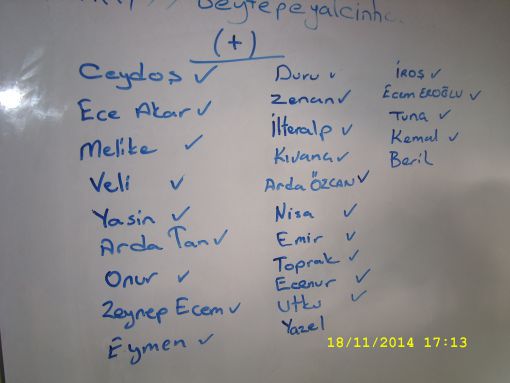 (+)
Ceydoş ✓
Ece Akar ✓
Melike ✓
Veli ✓
Yasin ✓
Arda Tan ✓
Onur ✓
Zeynep Ecem ✓
Eymen ✓
Duru ✓
Zenan ✓
İlteralp ✓
Kıvanç ✓
Arda ÖZCAN ✓
Nisa ✓
Emir ✓
Toprak ✓
Ecenur ✓
Utku ✓
Yazel
İroş ✓
Ecem EROĞLU ✓
Tuna ✓
Kemal ✓
Beril
18/11/2014 17:13